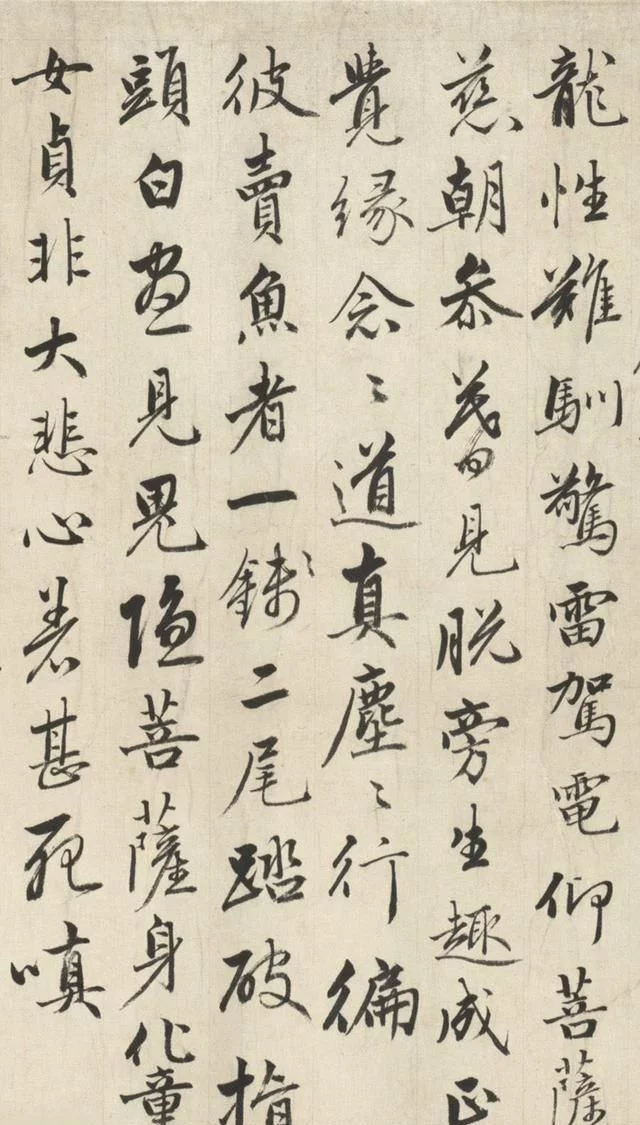 龍性難馴驚雷駕電仰菩薩
慈朝叅暮見脱旁生趣成正
覺緣念〻道真塵〻行徧
彼賣魚者一錢二尾踏破指
頭白晝見鬼隐菩薩身化童
女貞非大悲心若甚死嗔